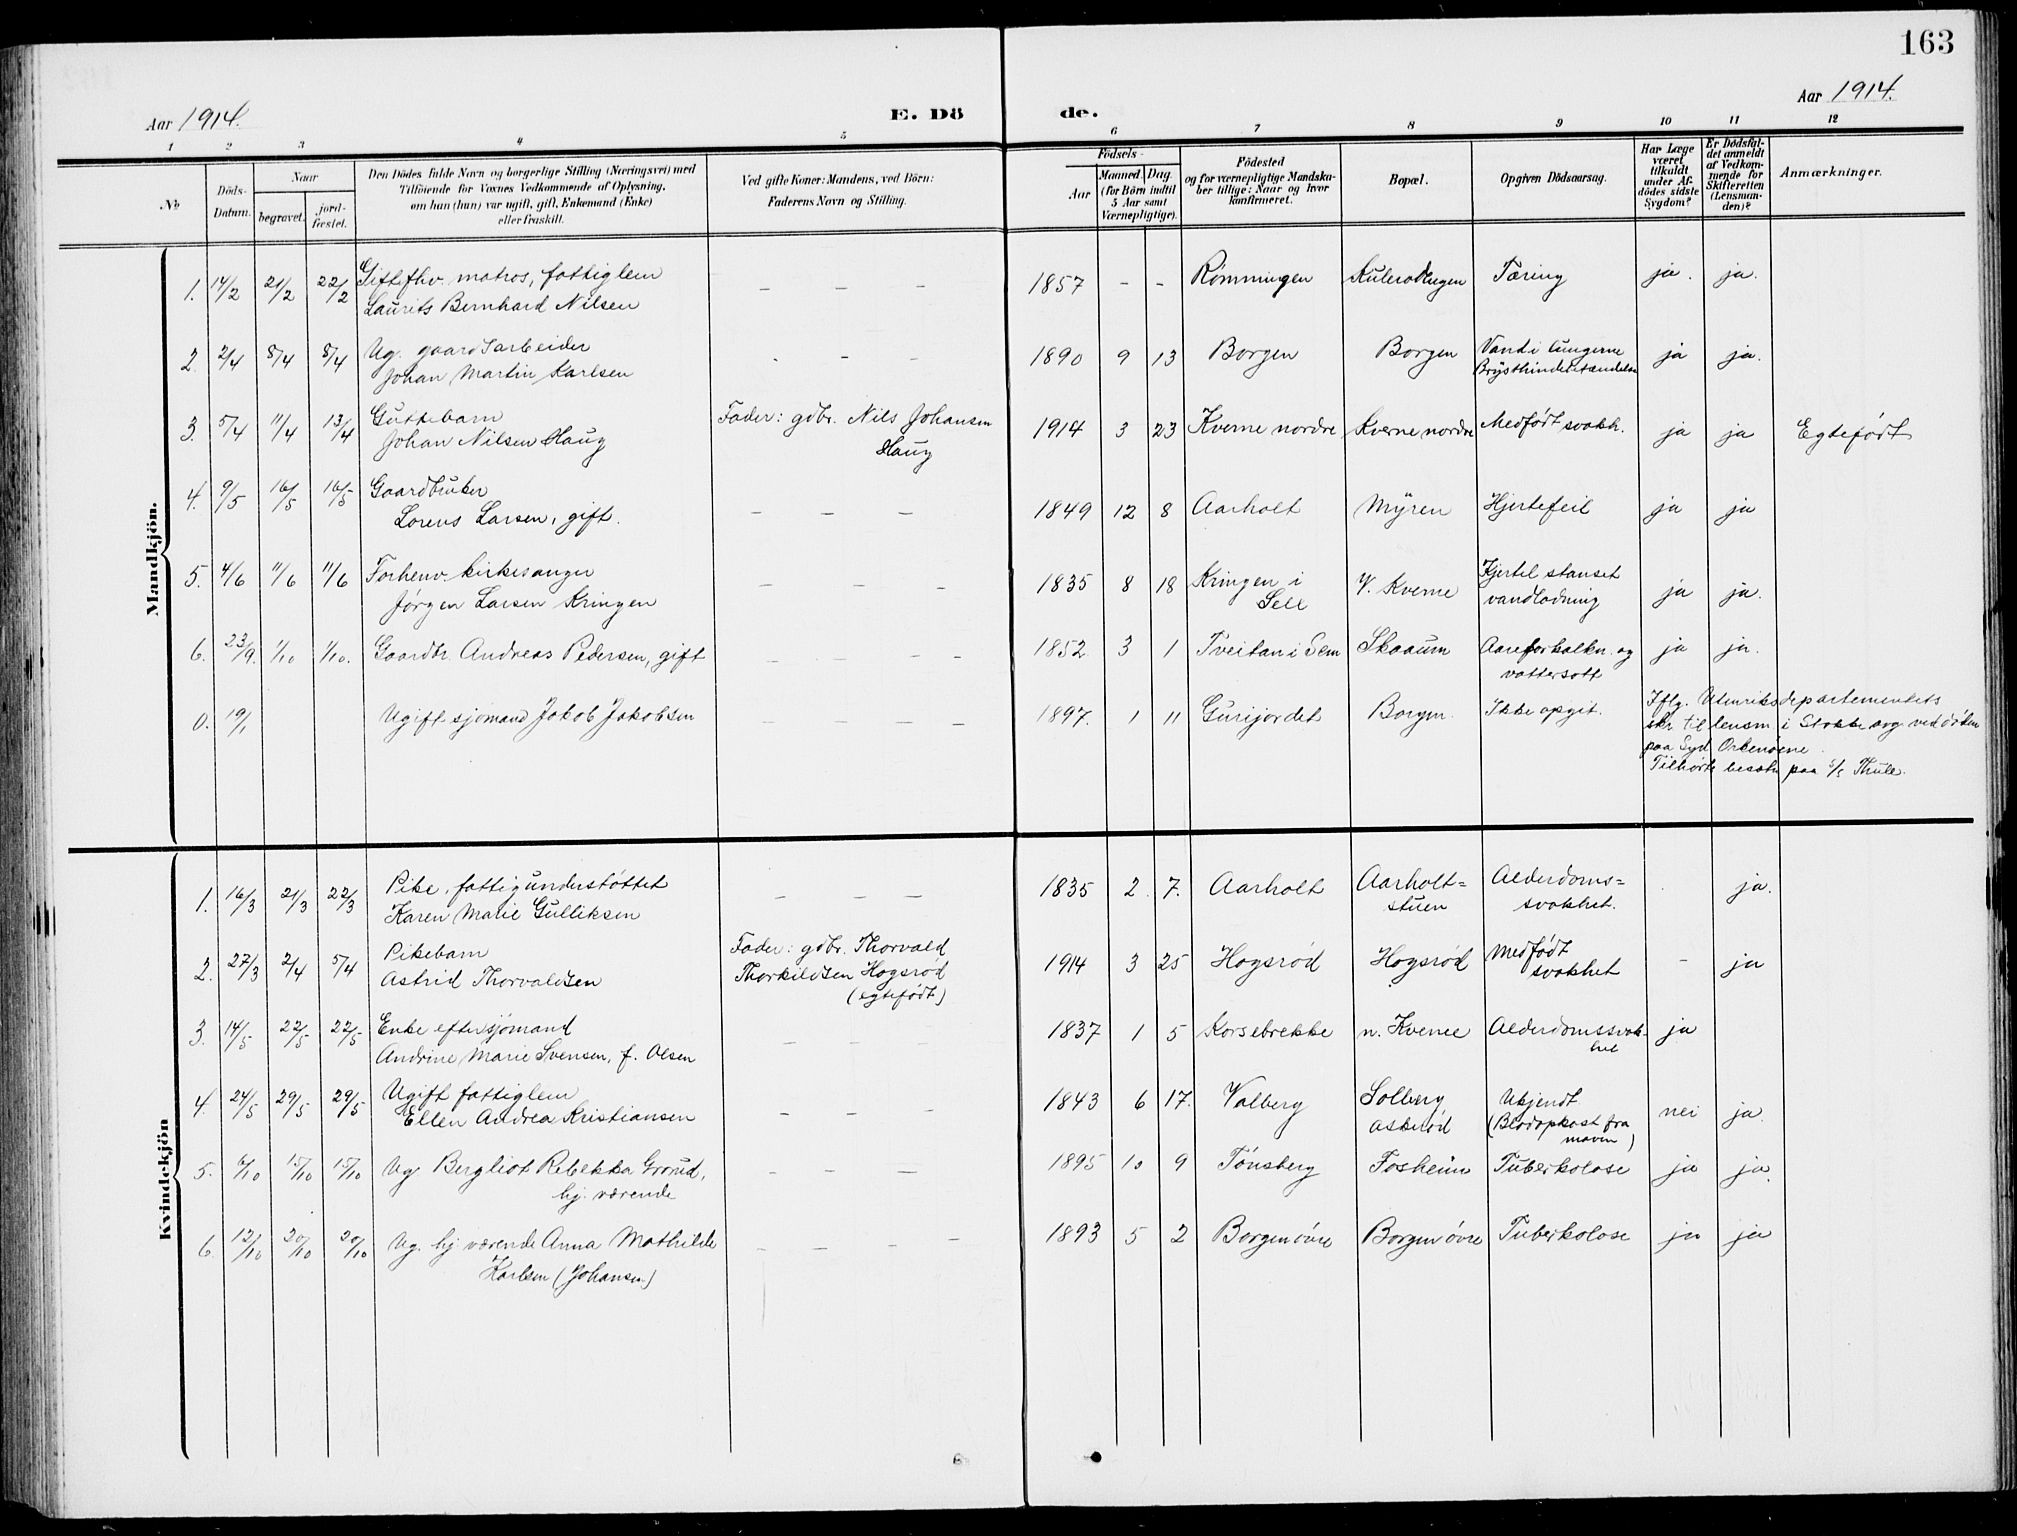 163
Aar 1914.
E. Dö de.
Aar 1914.
1 2 3 4 5 6 7 8 9 10 11 12
No
Döds-
Datum.
Naar
begravet.
jord-
fæstet.
Den Dödes fulde Navn og borgerlige Stilling (Næringsvei) med
Tilföiende for Voxnes Vedkommende af Oplysning,
om han (hun) var ugift, gift, Enkemand (Enke)
eller fraskilt.
Ved gifte Koner: Mandens, ved Börn:
Faderens Navn og Stilling.
Födsels-
Aar
Maaned. Dag.
(for Börn indtil
5 Aar samt
Værnepligtige).
Födested
og for værnepligtige Mandska-
ber tillige: Naar og hvor
konfirmeret.
Bopæl.
Opgiven Dödsaarsag.
Har Læge
været
tilkaldt
under Af-
dödes sidste
Sygdom?
Er Dödsfal-
det anmeldt
af Vedkom-
mende for
Skifteretten
(Lensman-
den)?
Anmærkninger.
Mandkjön.
1. 14/2 21/2 22/2 Gift fhv. matros, fattiglem
Laurits Bernhard Nilsen
- - - 1857 - - Rømmingen Tæring ja. ja.
2. 2/4 8/4 8/4 Ug. gaardsarbeider
Johan Martin Karlsen
- - - 1890 9 13 Borgen Borgen Vand i lungerne
Brysthindebetændelse ja ja.
3. 5/4 11/4 13/4 Guttebarn
Johan Nilsen Haug
Fader: gdbr. Nils Johansen
Haug
1914 3 23 Kverne nordre Kverne nordre Medfødt svakh. ja ja Egtefødt
4. 9/5 16/5 16/5 Gaardbruker
Lorens Larsen, gift.
- - - 1849 12 8 Aarholt Myren Hjertefeil ja ja
5. 4/6 11/6 11/6 Forhenv. kirkesanger
Jørgen Larsen Kringen
- - - 1835 8 18 Kringen i
Sell
V. Kverne Kjertel stanset
vandladning ja ja.
6. 23/9. 1/10 1/10. Gaardbr. Andreas Pedersen, gift
- - - - 1852 3 1 Tveitan i Sem Skaaum Aareforkalkn. og
vattersott ja ja.
0. 19/1 Ugift sjømand Jakob Jakobsen
- - - - 1897. 1 11 Gurijordet Borgen Ikke opgit.
Iflg. Utenriksdepartementets
skr. til lensm. i Stokke avg. ved døden
paa Syd Orkenøene.
Tilhørte besætn. paa s/s Thule.
Kvindekjön
1. 16/3 21/3 22/3 Pike, fattigunderstøttet
Karen Marie Gulliksen
- - - 1835 2. 7. Aarholt Aarholt=
stuen
Alderdoms=
svakhet. ja.
2. 27/3 2/4 5/4 Pikebarn
Astrid Thorvaldsen
Fader: gdbr. Thorvald
Thorkildsen Hogsrød
(egtefødt)
1914 3 25 Hogsrød Hogsrød Medfødt
svakhet - ja
3. 14/5 22/5 22/5 Enke efter sjømand
Andrine Marie Svensen, f. Olsen
- - - 1837 1 5 Korsebrekke n. Kverne Alderdomssvak-
het ja
4. 24/5 29/5 29/5 Ugift fattiglem
Ellen Andrea Kristiansen
- - - 1843 6 17. Valberg Solberg
Askerød
Ukjendt
(Blodopkast fra
maven) nei ja.
5. 6/10 15/10 15/10 Ug. Bergliot Rebekka Grorud,
hj. værende
- - - 1895 10 9 Tønsberg Fosheim Tuberkolose ja ja.
6. 12/10 20/10 20/10 Ug. hj. værende Anna Mathilde
Karlsen (Johansen)
- - - - 1893 5 2 Borgen øvre Borgen øvre Tuberkolose ja ja